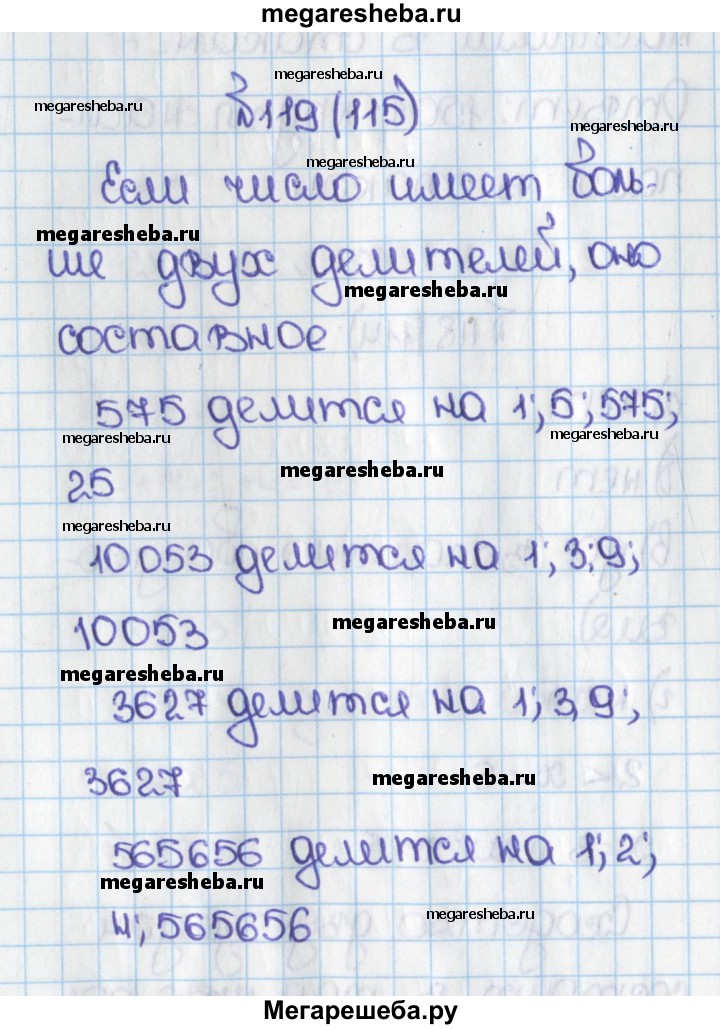 megaresheba.ru
megaresheba.ru
megaresheba.ru
№119 (115)
megaresheba.ru
megaresheba.ru
Если число имеет боль-
megaresheba.ru
ше двух делителей, оно
megaresheba.ru
составное
575 делится на 1; 5; 575;
megaresheba.ru
megaresheba.ru
25
megaresheba.ru
megaresheba.ru
10053 делится на 1; 3; 9;
10053
megaresheba.ru
megaresheba.ru
3627 делится на 1; 3, 9;
3627
megaresheba.ru
565656 делится на 1; 2;
megaresheba.ru
4; 565656
megaresheba.ru
Мегарешеба.ру